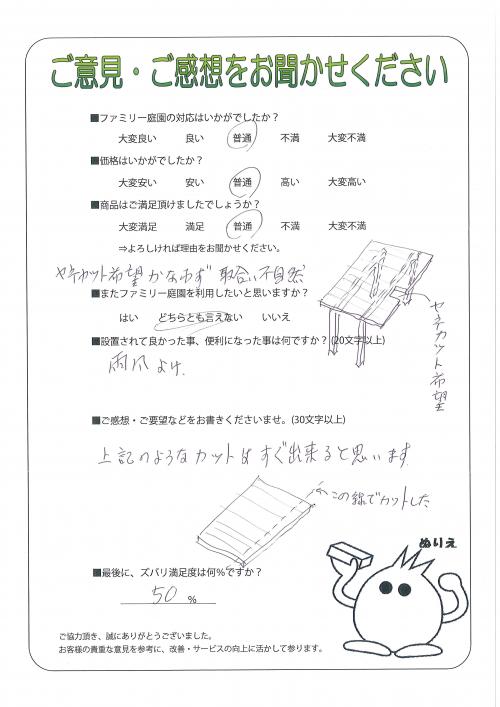 ご意見・ご感想をお聞かせください
■ファミリー庭園の対応はいかがでしたか？
大変良い 良い 普通 不満 大変不満
■価格はいかがでしたか？
大変安い 安い 普通 高い 大変高い
■商品はご満足頂けましたでしょうか？
大変満足 満足 普通 不満 大変不満
⇒よろしければ理由をお聞かせください。
カット希望かなわず 取合い不自然
■またファミリー庭園を利用したいと思いますか？
はい どちらとも言えない いいえ
カット希望
■設置されて良かった事、便利になった事は何ですか？(20文字以上)
雨爪よけ
■ご感想・ご要望などをお書きくださいませ。(30文字以上)
上記のようなカットはすぐ出来ると思います
この線でカットした
ぬりえ
■最後に、ズバリ満足度は何％ですか？
50 ％
ご協力頂き、誠にありがとうございました。
お客様の貴重な意見を参考に、改善・サービスの向上に活かして参ります。